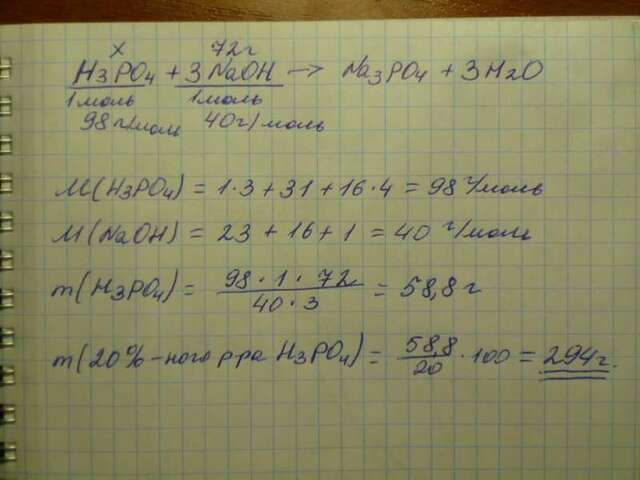 x 72г
H₃PO₄ + 3NaOH → Na₃PO₄ + 3H₂O
1моль 1моль
98 г/мол 40г/моль
M(H₃PO₄) = 1·3 + 31 + 16·4 = 98 г/моль
M(NaOH) = 23 + 16 + 1 = 40 г/моль
m(H₃PO₄) = 98·1·72 / 40·3 = 58,8 г
m(20%-ного р-ра H₃PO₄) = 58,8 / 20 · 100 = 294г.